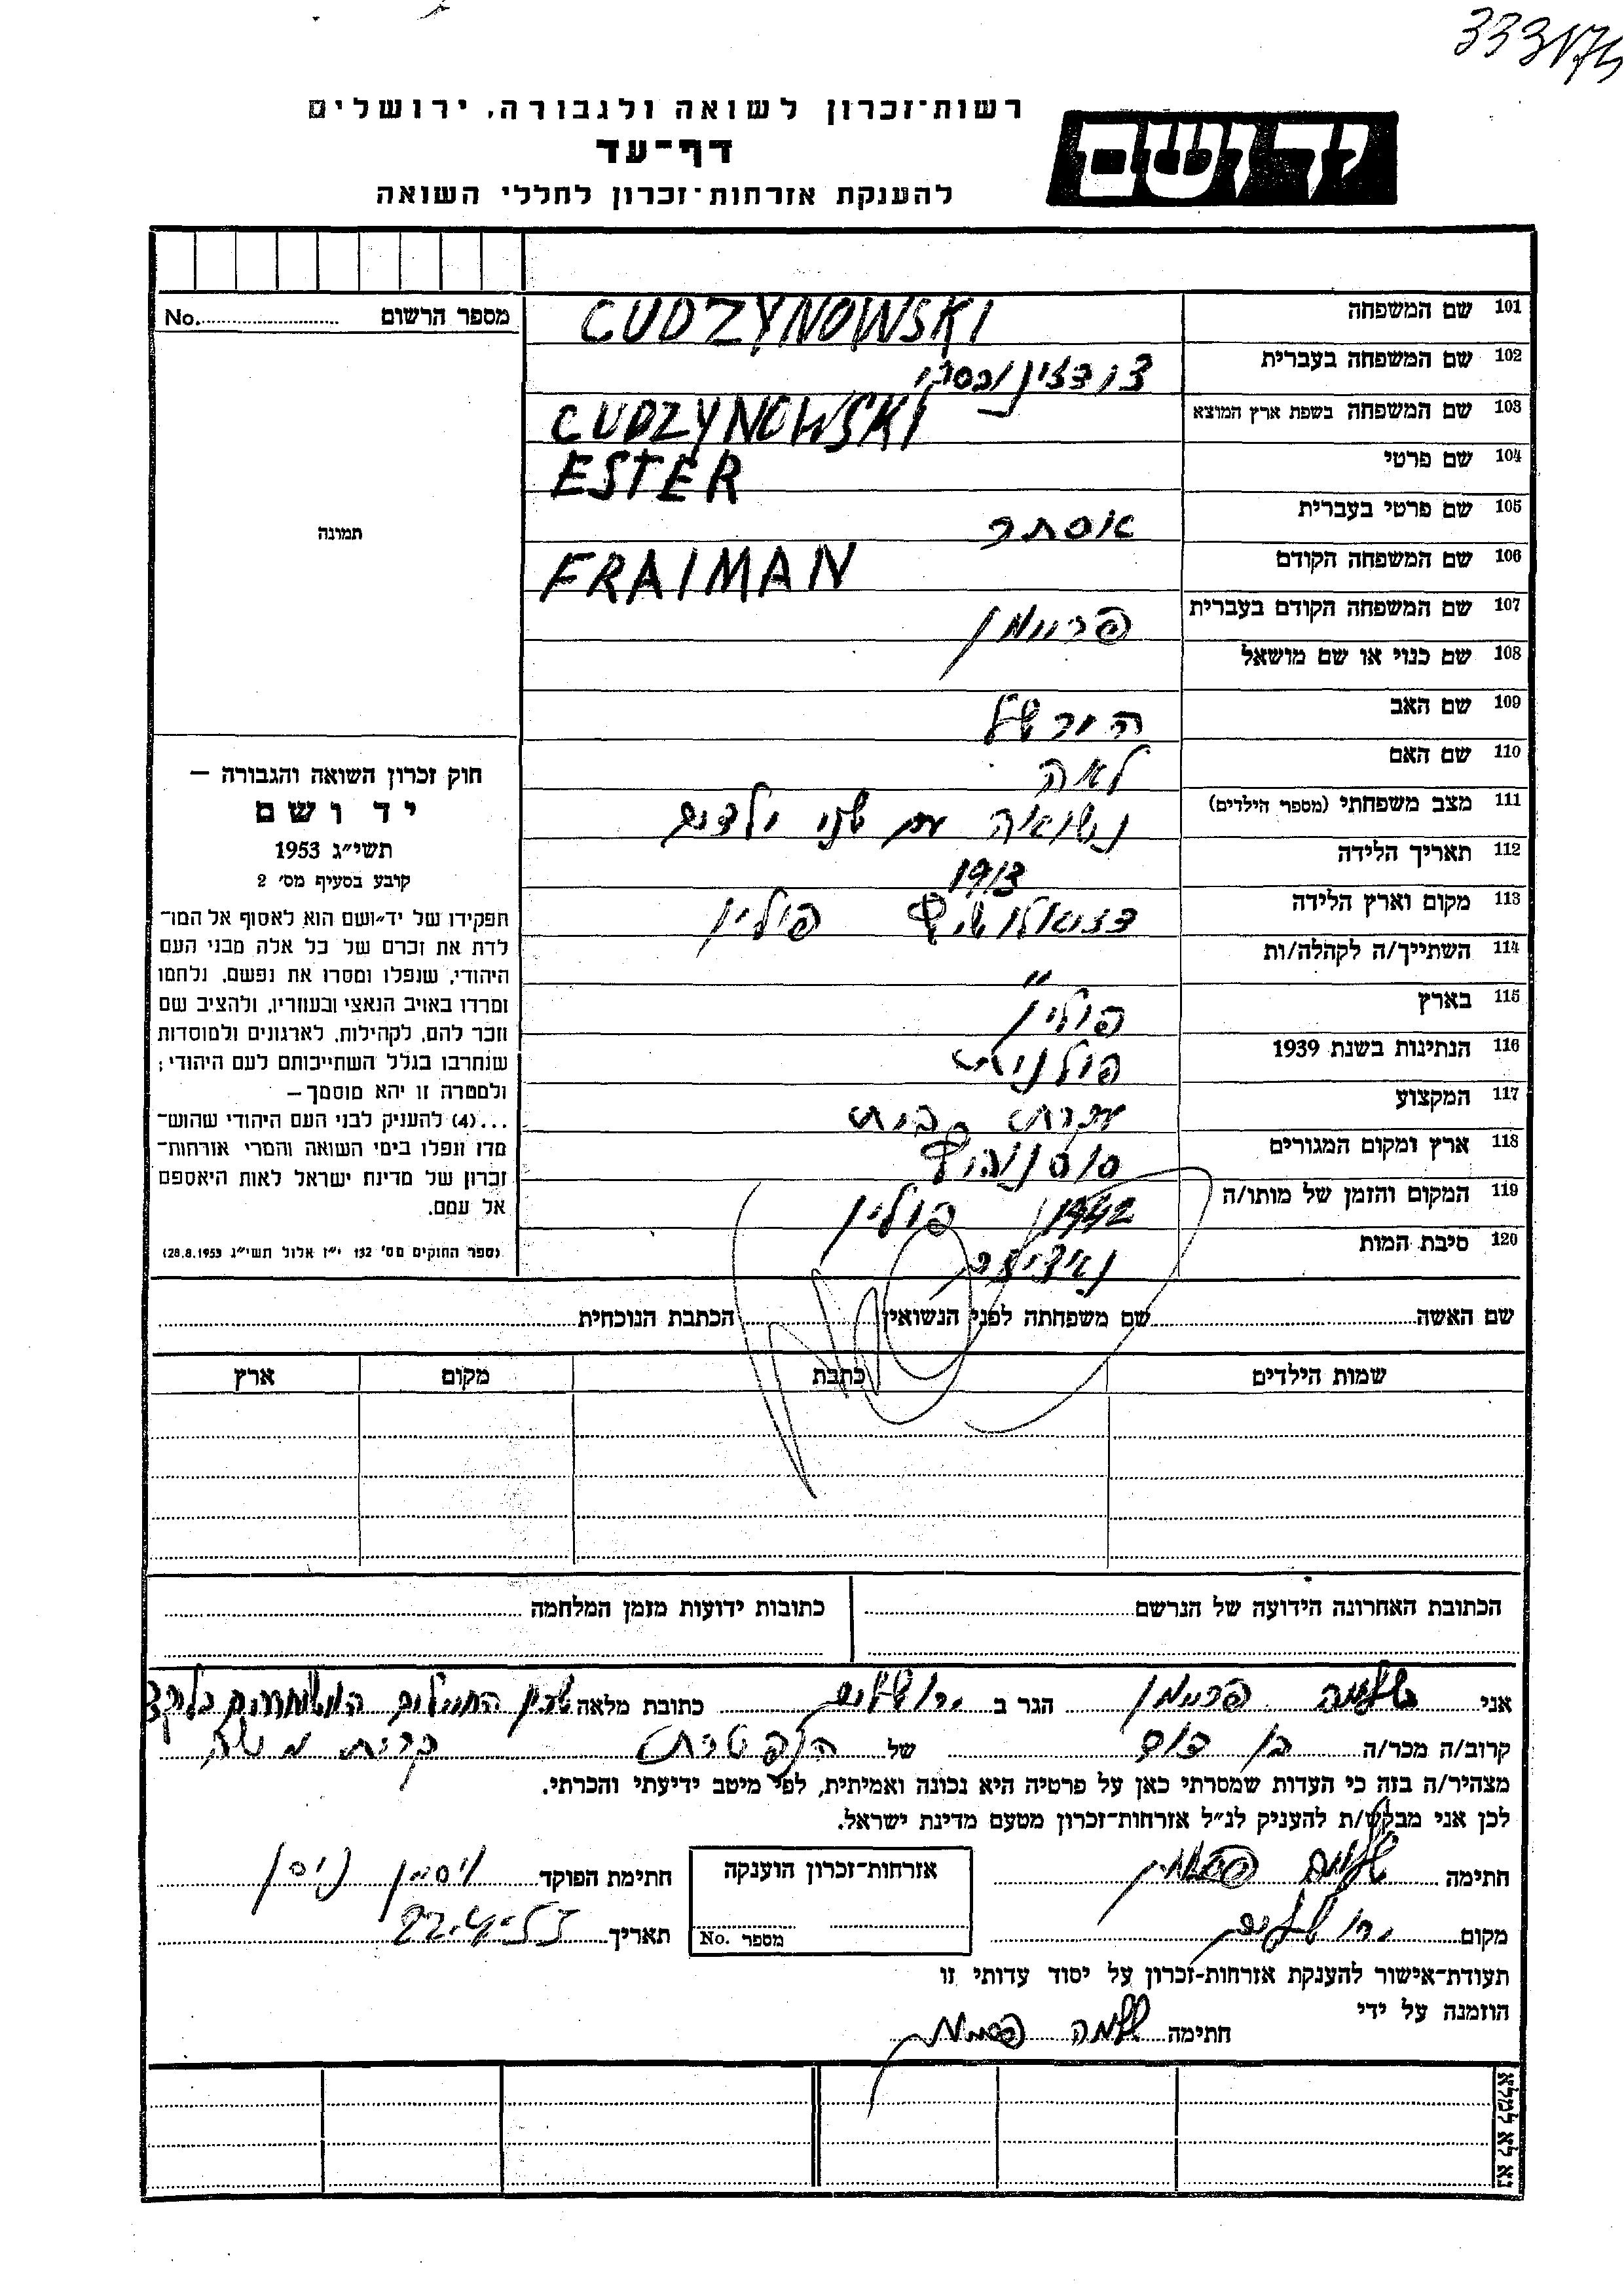 רשות־זכרון לשואה ולגבורה, ירושלים
יד ושם
דף־עד
להענקת אזרחות־זכרון לחללי השואה
מספר הרשום No.
תמונה
חוק זכרון השואה והגבורה —
יד ושם
תשי״ג 1953
קובע בסעיף מס׳ 2
תפקידו של יד־ושם הוא לאסוף אל המו־
לדת את זכרם של כל אלה מבני העם
היהודי, שנפלו ומסרו את נפשם, נלחמו
ומרדו באויב הנאצי ובעוזריו, ולהציב שם
וזכר להם, לקהילות, לארגונים ולמוסדות
שנחרבו בגלל השתייכותם לעם היהודי;
ולמטרה זו יהא מוסמך —
...(4) להעניק לבני העם היהודי שהוש־
מדו ונפלו בימי השואה והמרי אזרחות־
זכרון של מדינת ישראל לאות היאספם
אל עמם.
(ספר החוקים מס׳ 132 י״ז אלול תשי״ג 28.8.1953)
101 שם המשפחה CUDZYNOWSKI
102 שם המשפחה בעברית צודזינובסקי
103 שם המשפחה בשפת ארץ המוצא CUDZYNOWSKI
104 שם פרטי ESTER
105 שם פרטי בעברית אסתר
106 שם המשפחה הקודם FRAIMAN
107 שם המשפחה הקודם בעברית פריימן
108 שם כנוי או שם מושאל
109 שם האב הירשל
110 שם האם לאה
111 מצב משפחתי (מספר הילדים) נשואה עם שני ילדים
112 תאריך הלידה 1913
113 מקום וארץ הלידה דזיאלושיץ פולין
114 השתייך/ה לקהלה/ות ״
115 בארץ פולין
116 הנתינות בשנת 1939 פולנית
117 המקצוע עקרת בית
118 ארץ ומקום המגורים סוסנוביץ
119 המקום והזמן של מותו/ה 1942 פולין
120 סיבת המות
שם האשה שם משפחתה לפני הנשואין הכתבת הנוכחית
שמות הילדים כתבת מקום ארץ
הכתובת האחרונה הידועה של הנרשם כתובות ידועות מזמן המלחמה
אני שלמה פריימן הגר ב ירושלים כתובת מלאה שכון החיילים המשוחררים
קרוב/ה מכר/ה בן דוד של הנפטרת קרית משה
מצהיר/ה בזה כי העדות שמסרתי כאן על פרטיה היא נכונה ואמיתית, לפי מיטב ידיעתי והכרתי.
לכן אני מבקש/ת להעניק לנ״ל אזרחות־זכרון מטעם מדינת ישראל.
חתימה שלמה פריימן אזרחות־זכרון הוענקה חתימת הפוקד ניסן
מקום ירושלים מספר No. תאריך 22.4.55
תעודת־אישור להענקת אזרחות־זכרון על יסוד עדותי זו
הוזמנה על ידי
חתימה שלמה פריימן
נא לא למלא